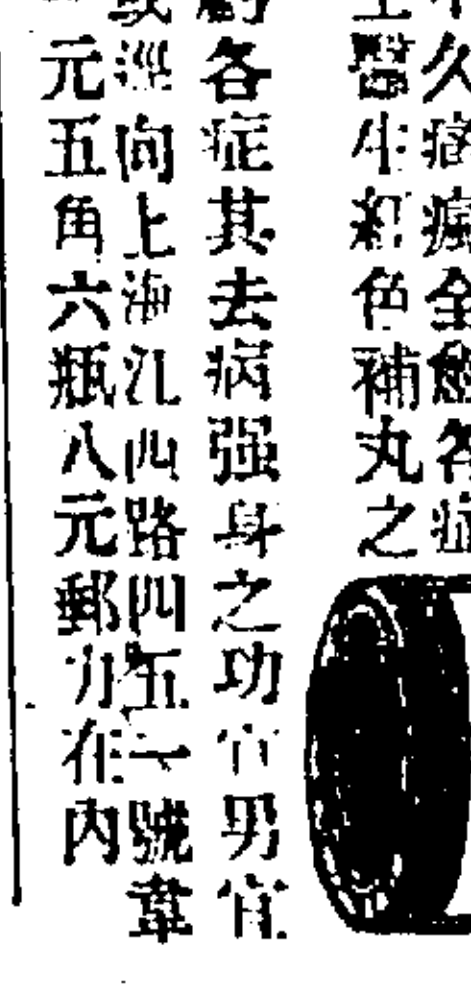 久病瘋全愈各症
醫生紅色補丸之
各症其去病强身之功宜男宜
逕向上海江西路四五一號韋
元五角六瓶八元郵力在內